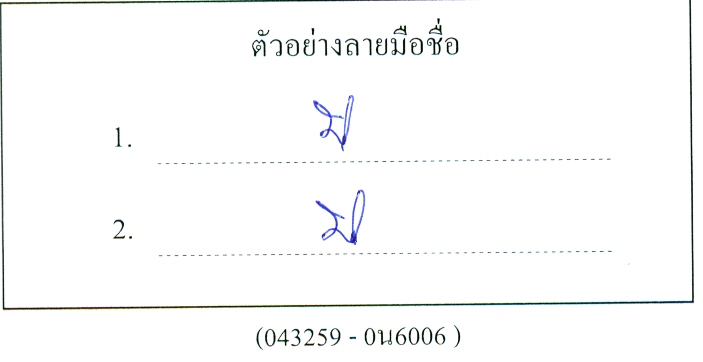 ตัวอย่างลายมือชื่อ
1.
2.
(043259 - 0น6006 )